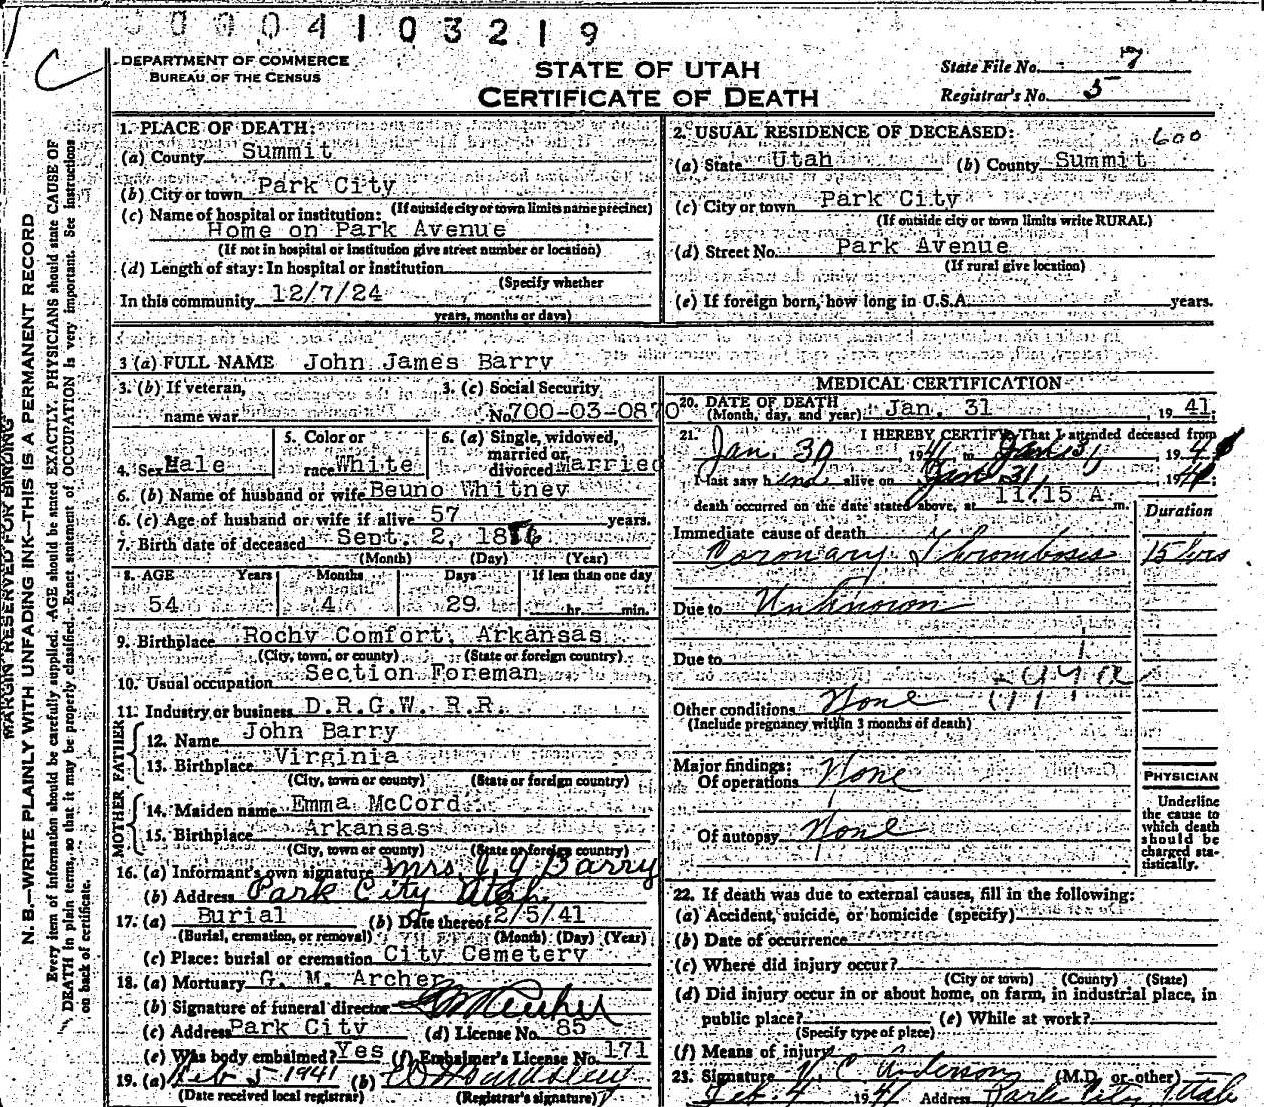 0004103219
DEPARTMENT OF COMMERCE
BUREAU OF THE CENSUS
STATE OF UTAH
CERTIFICATE OF DEATH
State File No. 7
Registrar's No. 5
MARGIN RESERVED FOR BINDING
N. B.—WRITE PLAINLY WITH UNFADING INK—THIS IS A PERMANENT RECORD
Every item of information should be carefully supplied. AGE should be stated EXACTLY. PHYSICIANS should state CAUSE OF
DEATH in plain terms, so that it may be properly classified. Exact statement of OCCUPATION is very important. See instructions
on back of certificate.
1. PLACE OF DEATH:
(a) County Summit
(b) City or town Park City
(If outside city or town limits name precinct)
(c) Name of hospital or institution:
Home on Park Avenue
(If not in hospital or institution give street number or location)
(d) Length of stay: In hospital or institution
(Specify whether
In this community 12/7/24
years, months or days)
2. USUAL RESIDENCE OF DECEASED: 600
(a) State Utah (b) County Summit
(c) City or town Park City
(If outside city or town limits write RURAL)
(d) Street No. Park Avenue
(If rural give location)
(e) If foreign born, how long in U.S.A. years.
3 (a) FULL NAME John James Barry
3. (b) If veteran,
name war
3. (c) Social Security
No. 700-03-0870
4. Sex Male
5. Color or
race White
6. (a) Single, widowed,
married or
divorced Married
6. (b) Name of husband or wife Beuno Whitney
6. (c) Age of husband or wife if alive 57 years.
7. Birth date of deceased Sept. 2, 1886
(Month) (Day) (Year)
8. AGE Years Months Days If less than one day
54 4 29 hr. min.
9. Birthplace Rochy Comfort, Arkansas
(City, town, or county) (State or foreign country)
10. Usual occupation Section Foreman
11. Industry or business D.R.G.W. R.R.
FATHER
12. Name John Barry
13. Birthplace Virginia
(City, town or county) (State or foreign country)
MOTHER
14. Maiden name Emma McCord
15. Birthplace Arkansas
(City, town or county) (State or foreign country)
16. (a) Informant's own signature Mrs. J. J. Barry
(b) Address Park City Utah.
17. (a) Burial (b) Date thereof 2/5/41
(Burial, cremation, or removal) (Month) (Day) (Year)
(c) Place: burial or cremation City Cemetery
18. (a) Mortuary G. M. Archer
(b) Signature of funeral director GM Archer
(c) Address Park City (d) License No. 85
(e) Was body embalmed? Yes (f) Embalmer's License No. 171
19. (a) Feb 5 1941 (b)
(Date received local registrar) (Registrar's signature)
MEDICAL CERTIFICATION
20. DATE OF DEATH
(Month, day, and year) Jan. 31, 1941;
21. I HEREBY CERTIFY, That I attended deceased from
Jan. 30, 1941, to Jan 31, 1941
I last saw him alive on Jan 31, 1941;
death occurred on the date stated above, at 11:15 A. m.
Duration
Immediate cause of death
Coronary Thrombosis 15 hrs
Due to Unknown
Due to
Other conditions None
(Include pregnancy within 3 months of death)
Major findings:
Of operations None
Of autopsy None
PHYSICIAN
Underline
the cause to
which death
should be
charged sta-
tistically.
22. If death was due to external causes, fill in the following:
(a) Accident, suicide, or homicide (specify)
(b) Date of occurrence
(c) Where did injury occur?
(City or town) (County) (State)
(d) Did injury occur in or about home, on farm, in industrial place, in
public place? (e) While at work?
(Specify type of place)
(f) Means of injury
23. Signature C Anderson (M.D. or other)
Feb. 4 1941 Address Park City, Utah